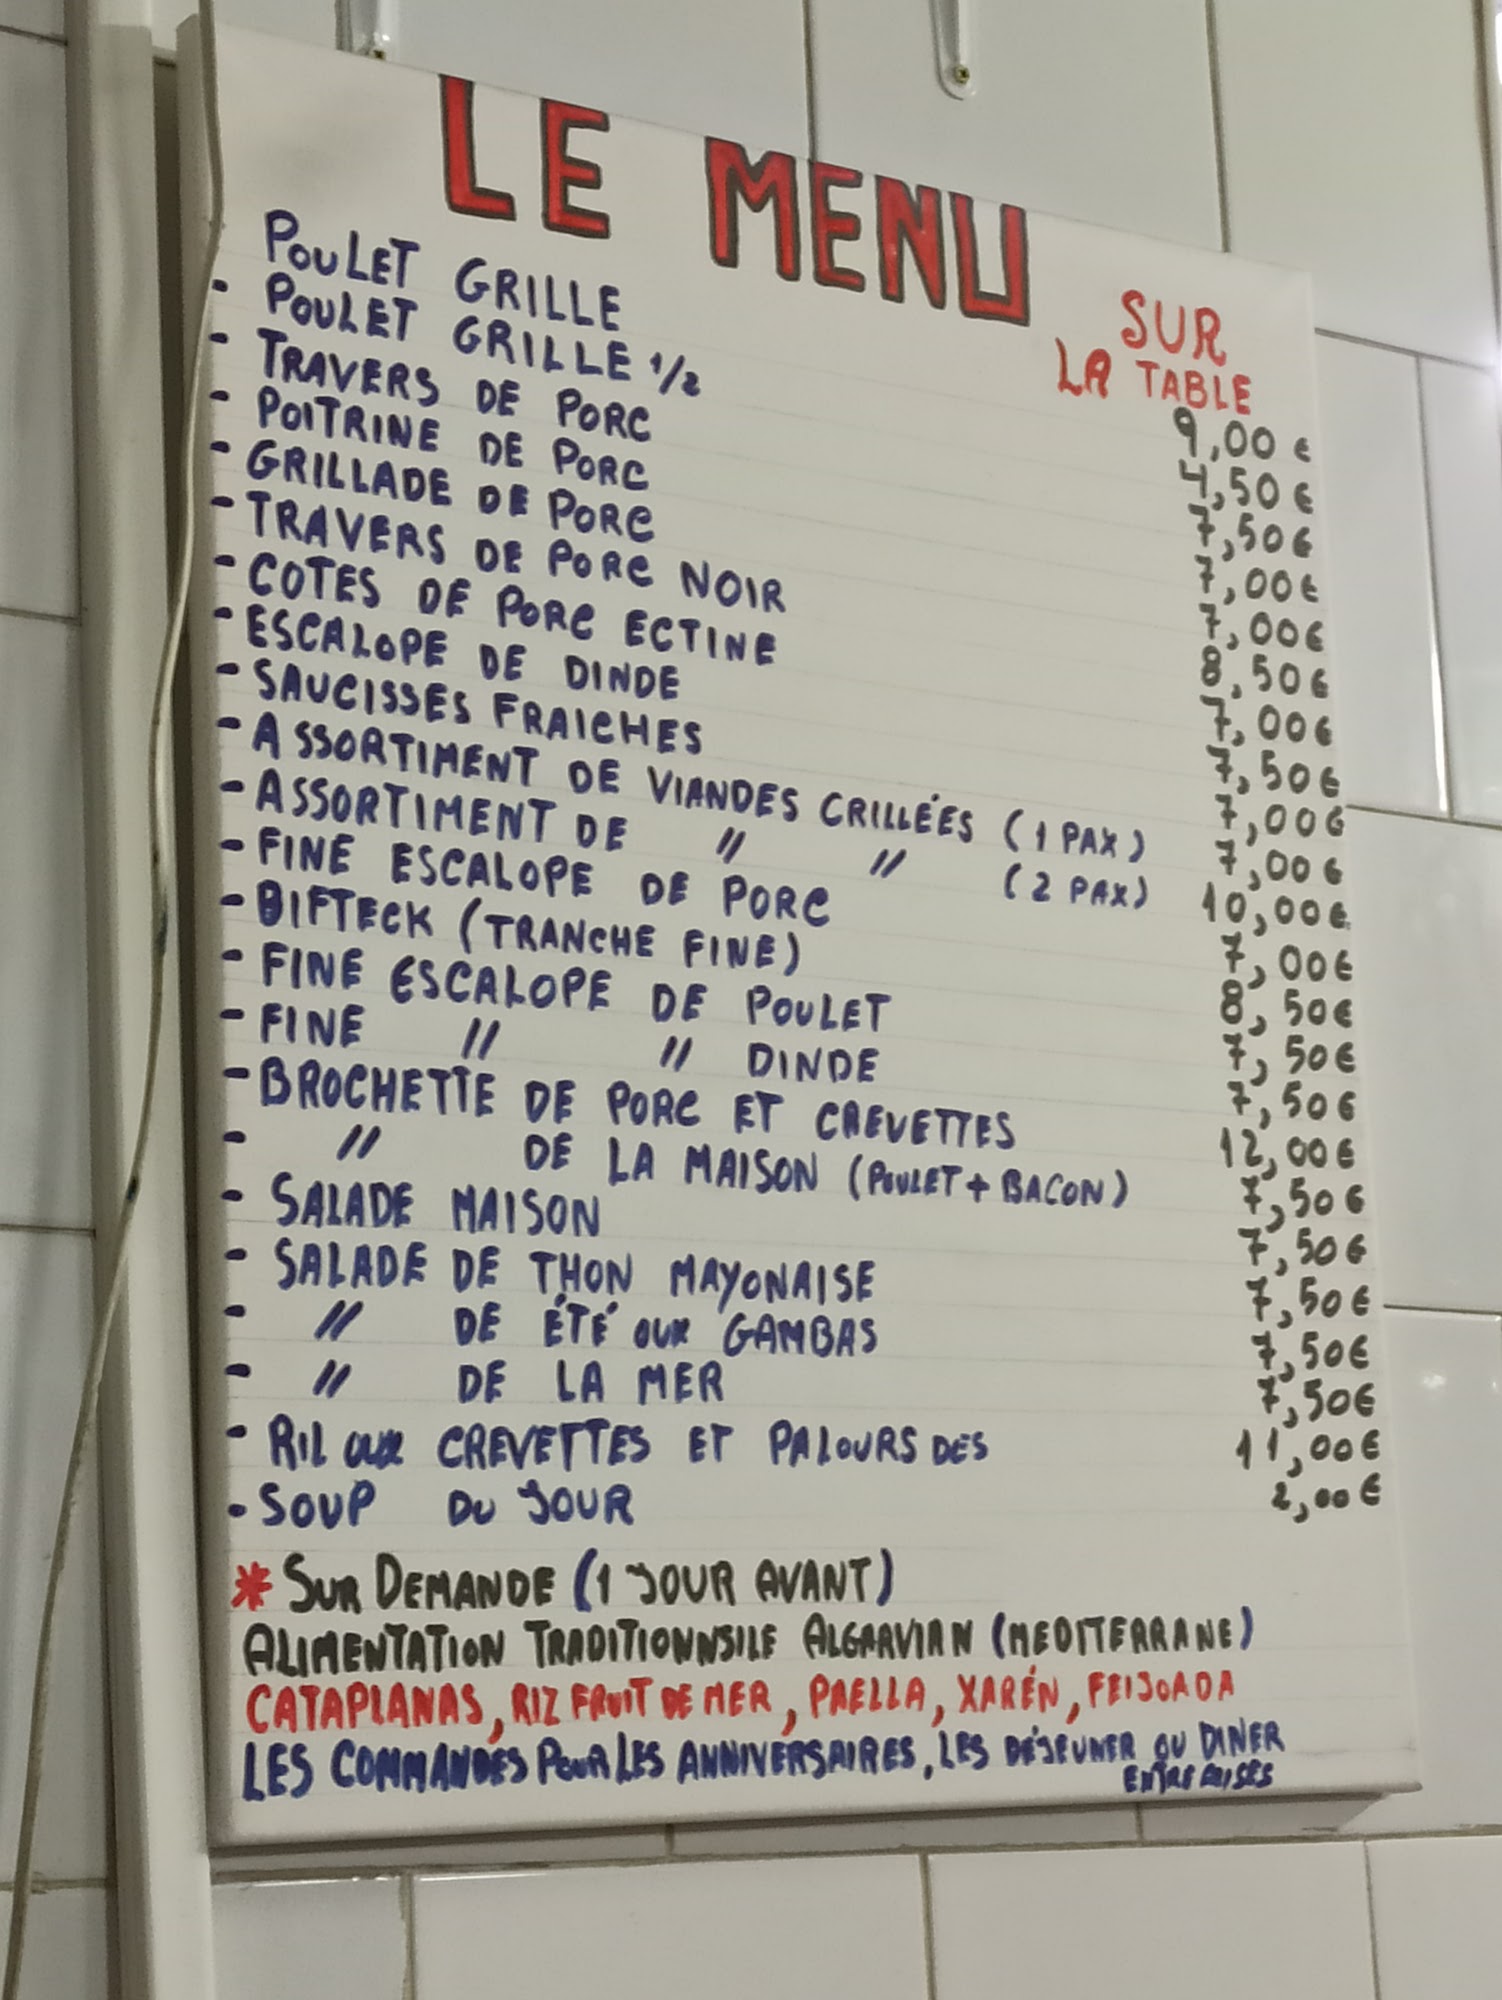 LE MENU
SUR
LA TABLE
POULET GRILLE 9,00 €
- POULET GRILLE 1/2 4,50 €
- TRAVERS DE PORC 7,50 €
- POITRINE DE PORC 7,00 €
- GRILLADE DE PORC 7,00 €
- TRAVERS DE PORC NOIR 8,50 €
- COTES DE PORC ECTINE 7,00 €
- ESCALOPE DE DINDE 7,50 €
- SAUCISSES FRAICHES 7,00 €
- ASSORTIMENT DE VIANDES CRILLÉES (1 PAX) 7,00 €
- ASSORTIMENT DE " " (2 PAX) 10,00 €
- FINE ESCALOPE DE PORC 7,00 €
- BIFTECK (TRANCHE FINE) 8,50 €
- FINE ESCALOPE DE POULET 7,50 €
- FINE " " DINDE 7,50 €
- BROCHETTE DE PORC ET CREVETTES 12,00 €
- " DE LA MAISON (POULET + BACON) 7,50 €
- SALADE MAISON 7,50 €
- SALADE DE THON MAYONAISE 7,50 €
- " DE ÉTÉ aux GAMBAS 7,50 €
- " DE LA MER 7,50 €
- RIL aux CREVETTES ET PALOURSDES 11,00 €
- SOUP DU JOUR 2,00 €
* SUR DEMANDE (1 JOUR AVANT)
ALIMENTATION TRADITIONNSILE ALGARVIAN (MEDITERRANE)
CATAPLANAS, RIZ FRUIT DE MER, PAELLA, XARÉN, FEIJOADA
LES COMMANDES POUR LES ANNIVERSAIRES, LES DÉJEUNER OU DINER